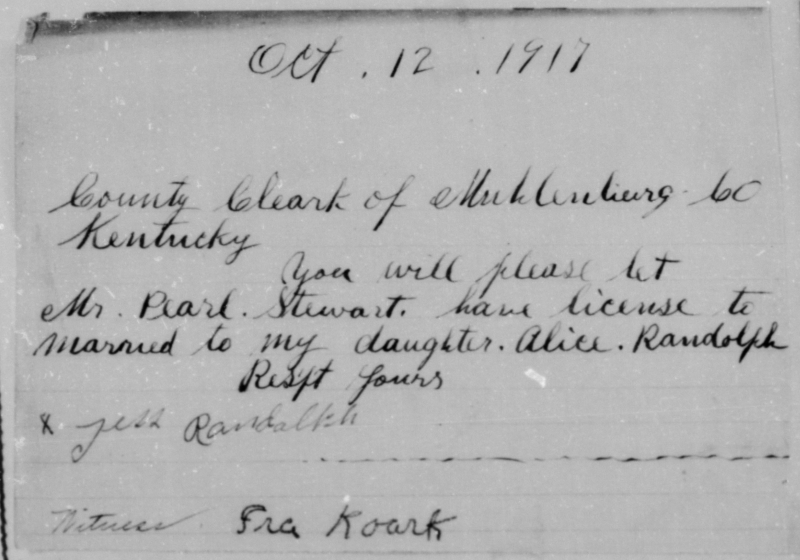 Oct. 12. 1917
County Cleark of Muhlenburg Co
Kentucky
You will please let
Mr. Pearl. Stewart. have license to
married to my daughter. Alice. Randolph
Respt Yours
x Jess Randolph
Witness Fra Roark